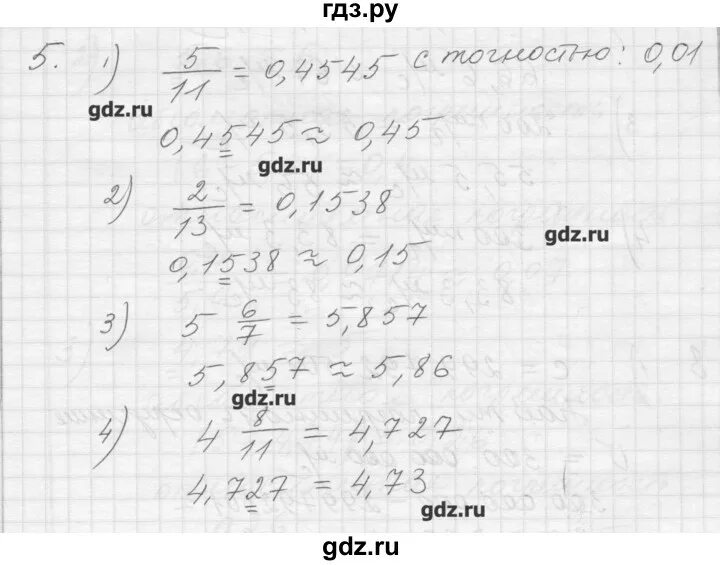 гдз.ру
5. 1) 5/11 = 0,4545 с точностью: 0,01
gdz.ru
0,4545 ≈ 0,45
gdz.ru
2) 2/13 = 0,1538
gdz.ru
0,1538 ≈ 0,15
3) 5 6/7 = 5,857
5,857 ≈ 5,86
gdz.ru
4) 4 8/11 = 4,727
4,727 = 4,73
gdz.ru
gdz.ru